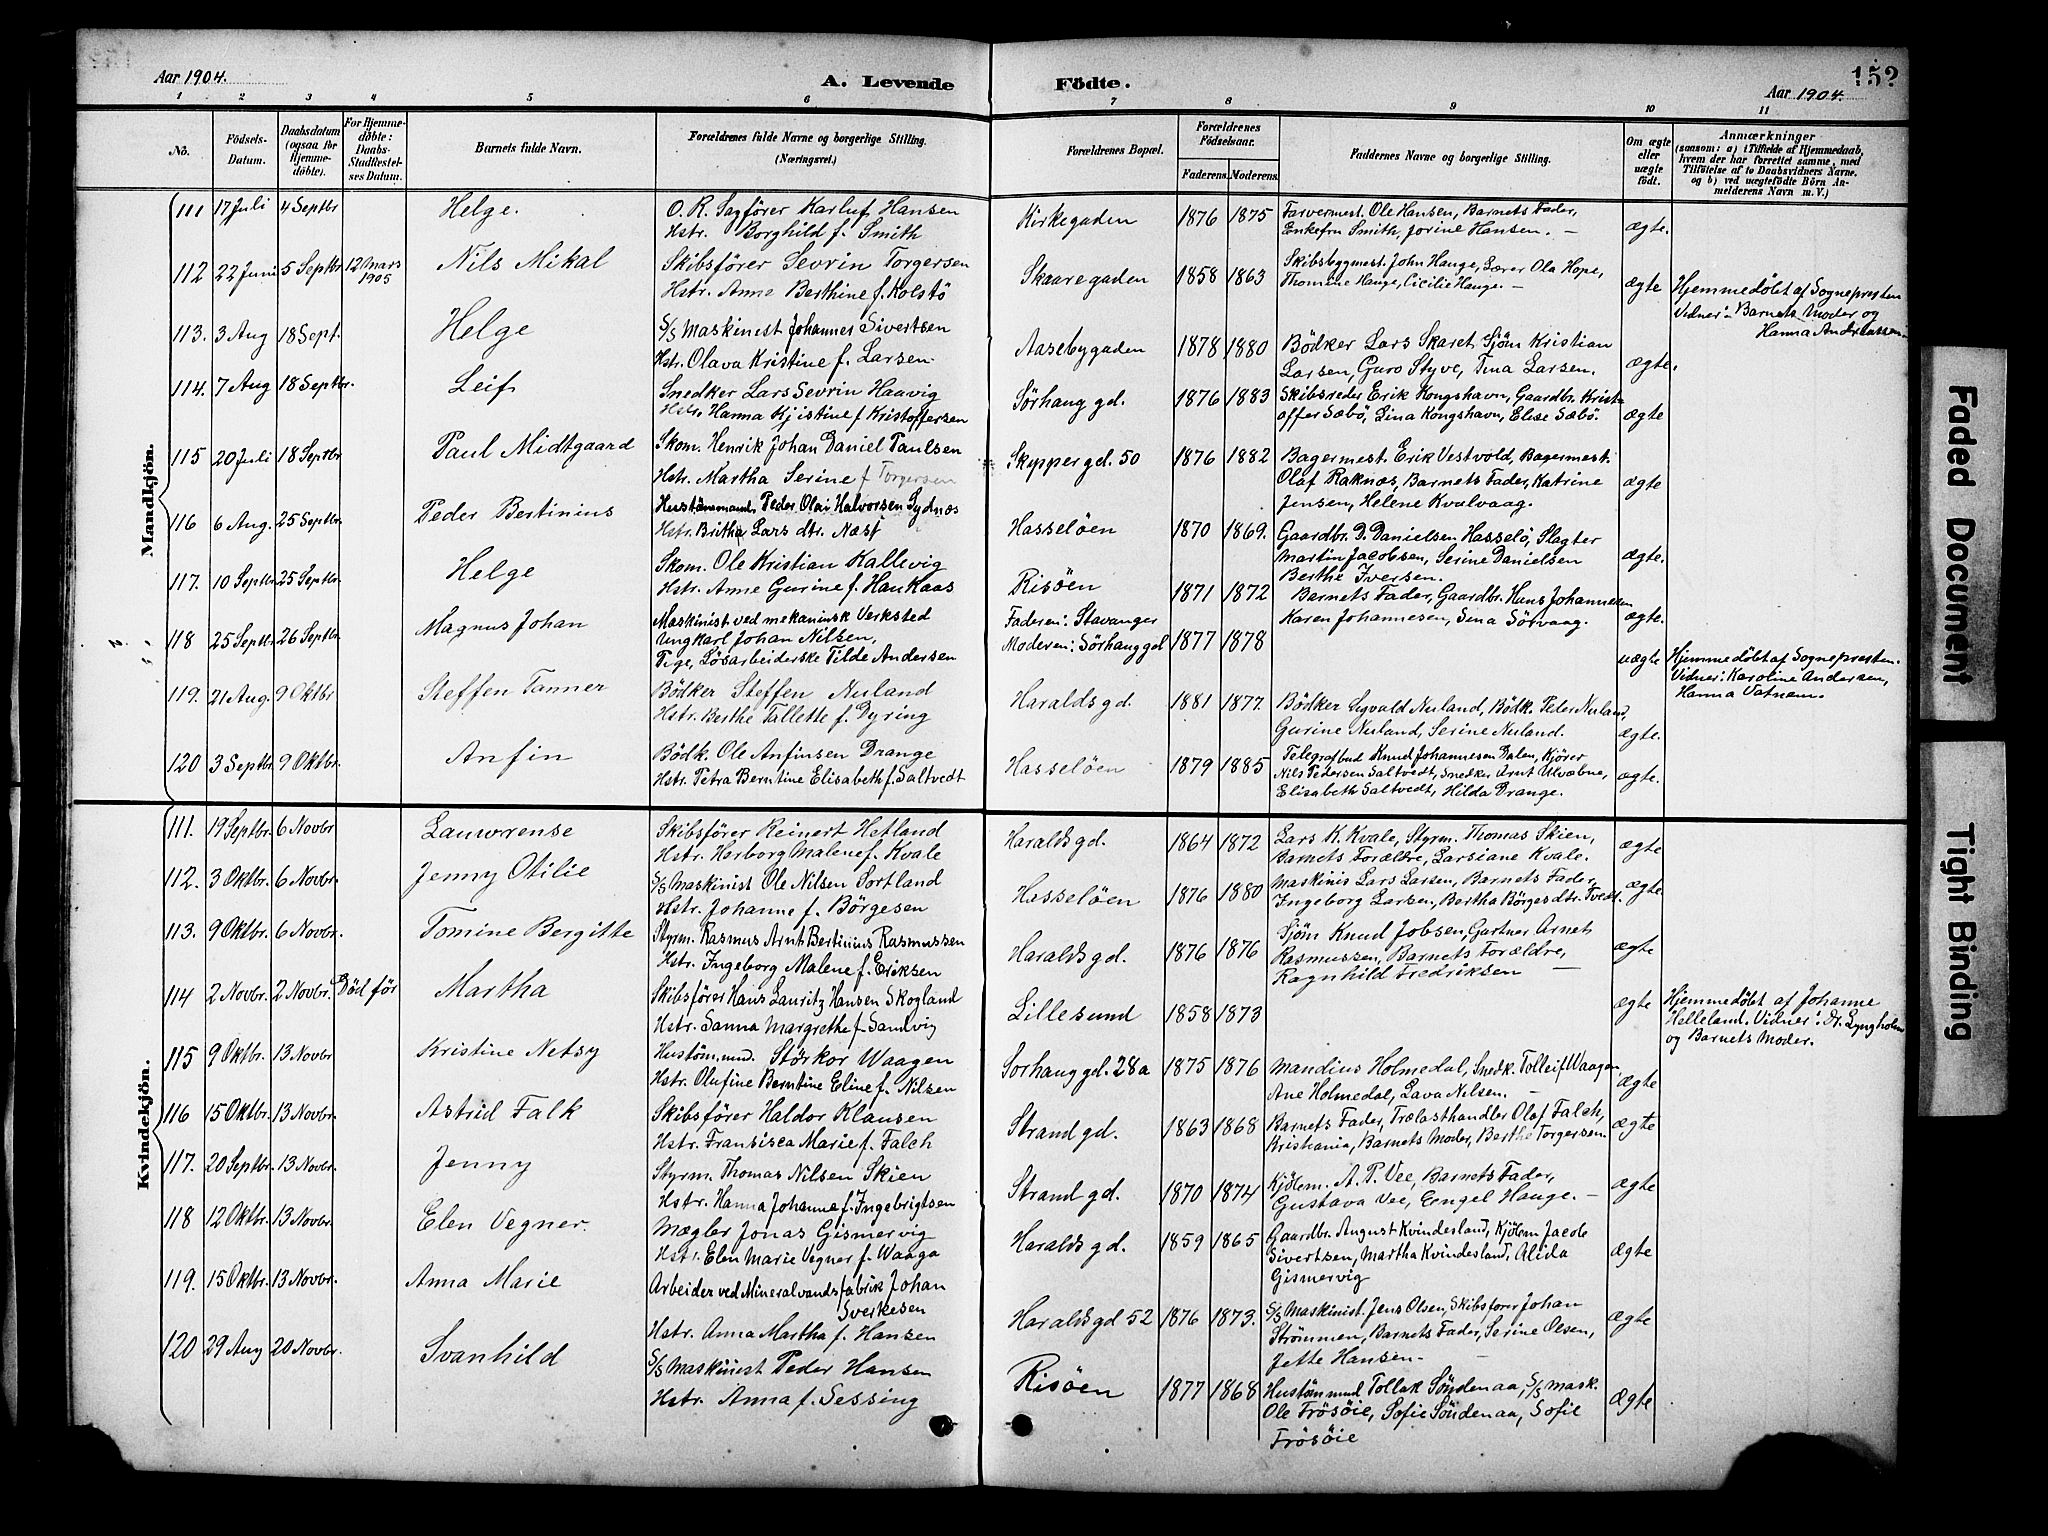 Aar 1904.
A. Levende Födte.
152
Aar 1904.
1 2 3 4 5 6 7 8 9 10 11
No.
Födsels-Datum.
Daabsdatum (ogsaa for Hjemmedöbte).
For Hjemmedöbte: Daabs-Stadfæstelses Datum.
Barnets fulde Navn.
Forældrenes fulde Navne og borgerlige Stilling. (Næringsvei.)
Forældrenes Bopæl.
Forældrenes Födselsaar.
Faderens. Moderens.
Faddernes Navne og borgerlige Stilling.
Om ægte eller uægte födt.
Anmærkninger
(saasom: a) i Tilfælde af Hjemmedaab, hvem der har forrettet samme, med Tilföielse af to Daabsvidners Navne, og b) ved uægtefödte Börn Anmelderens Navn m. V.)
Mandkjön.
111 17 Juli 4 Septbr Helge. O. R. Sagförer Karluf Hansen
Hstr. Borghild f. Smith
Kirkegaden 1876 1875 Farvermest. Ole Hansen, Barnets Fader,
Enkefru Smith, Jorine Hansen. — ægte.
112 22 Juni 5 Septbr 12 Mars 1905 Nils Mikal Skibsförer Sevrin Torgersen
Hstr. Anne Berthine f. Kolstö
Skaaregaden 1858 1863 Skibsbygmest. John Hauge, Lærer Ola Hope,
Thomine Hauge, Cicilie Hauge. — ægte
Hjemmedöbt af Sognepresten
Vidner: Barnets Moder og
Hanna Andreassen.
113. 3 Aug 18 Sept. Helge S/S Maskinest Johannes Sivertsen
Hstr. Olava Kristine f. Larsen.
Aasebygaden 1878 1880 Bödker Lars Skaret, Sjöm Kristian
Larsen, Guro Styve, Tina Larsen. ægte.
114. 7 Aug 18 Septbr. Leif Snedker Lars Sevrin Haavig
Hstr. Hanna Kjistine f Kristoffersen
Sörhaug gd. 1876 1883 Skibsreder Erik Kongshavn, Gaardbr. Krist
offer Sæbö, Lina Kongshavn, Elise Sæbö. ægte
115 20 Juli 18 Septbr Paul Midtgaard Skom. Henrik Johan Daniel Paulsen
Hstr. Martha Serine f Torgersen
Skippergd. 50 1876 1882 Bagermest. Erik Vestvold, Bagermest.
Olaf Raknæs, Barnets Fader, Katrine
Jensen, Helene Kvalvaag. ægte
116 6 Aug. 25 Septbr Peder Bertinius Hustömmand. Peder Olai Halvorsen Sydnæs
Hstr. Britha Lars dtr. Næst
Hasselöen 1870 1869. Gaardbr. D. Danielsen Hasselö, Slagter
Martin Jacobsen, Serine Danielsen
Berthe Iversen. ægte.
117. 10 Septbr 25 Septbr Helge Skom. Ole Kristian Kallevig
Hstr. Anne Gurine f. Haukaas
Risöen 1871 1872 Barnets Fader, Gaardbr. Hans Johannesen
Karen Johannesen, Sina Sörvaag. ægte.
118 25 Septbr 26 Septbr Magnus Johan Maskinist ved mekaninsk Verksted
Ungkarl Johan Nilsen,
Pige, Lösarbeiderske Tilde Andersen
Faderen: Stavanger
Moderen: Sörhauggd 1877 1878 uægte
Hjemmedöbt af Sognepresten.
Vidner: Karoline Andersen,
Hanna Vatnem.
119. 21 Aug. 9 Oktbr Steffen Tanner Bödker Steffen Nuland
Hstr. Berthe Tallette f. Dyring
Haralds gd. 1881 1877. Bödker Sigvald Nuland, Bödk. Peter Nuland,
Gurine Nuland, Serine Nuland. ægte.
120 3 Septbr. 9 Oktbr. Anfin Bödk. Ole Anfinsen Drange
Hstr. Petra Berntine Elisabeth f. Saltvedt
Hasselöen 1879 1885 Telegrafbud Knud Johannesen Dalen, Kjörer
Nils Pedersen Saltvedt, Snedker Arnt Ulvöbne,
Elisabeth Saltvedt, Hilda Drange. ægte.
Kvindekjön.
111. 19 Septbr. 6 Novbr Lauwrense Skibsförer Reinert Hetland
Hstr. Herborg Malene f. Kvale
Haralds gd. 1864 1872 Lars K. Kvale, Styrm. Thomas Skien,
Barnets Forældre, Larsiane Kvale. ægte
112. 3 Oktbr. 6 Novbr. Jenny Otilie S/S Maskinist Ole Nilsen Sortland
Hstr. Johanne f. Börgesen
Hasselöen 1876 1880 Maskinis Lars Larsen, Barnets Fader,
Ingeborg Larsen, Bertha Börgesdtr. Tvedt. ægte
113. 9 Oktbr. 6 Novbr. Tomine Bergitte Styrm. Rasmus Arnt Bertinius Rasmussen
Hstr. Ingeborg Malene f. Eriksen
Haralds gd. 1876 1876 Sjöm Knud Jobsen, Gartner Arnets
Rasmussen, Barnets Forældre,
Ragnhild Fredriksen — ægte
114 2 Novbr. 2 Novbr. Död för Martha Skibsförer Hans Lauritz Hansen Skogland
Hstr. Sanna Margrethe f. Sandvig
Lillesund 1858 1873 ægte
Hjemmedöbt af Johanne
Helleland. Vidner: Dr. Lyngholm
og Barnets Moder.
115 9 Oktbr. 13 Novbr Kristine Netsy Hustöm.md. Störkor Waagen
Hstr. Olufine Berntine Eline f. Nilsen
Sorhaug gd. 28a 1875 1876 Mandius Holmedal, Snedk. Tolleif Waagen,
Ane Holmedal, Lava Nilsen. — ægte
116 15 Oktbr. 13 Novbr. Astrid Falk Skibsförer Haldor Klausen
Hstr. Fransisca Marie f. Falch
Strand gd. 1863 1868 Barnets Fader, Trælasthandler Olaf Falch,
Kristiania, Barnets Moder, Berthe Torgersen. ægte
117. 20 Septbr. 13 Novbr. Jenny Styrm. Thomas Nilsen Skien
Hstr. Hanna Johanne f. Ingebrigtsen
Strand gd. 1870 1874 Kjölem. A. P. Vee, Barnets Fader,
Gustava Vee, Engel Hauge. — ægte
118 12 Oktbr. 13 Novbr. Elen Vegner. Mægler Jonas Gismervig
Hstr. Elen Marie Vegner f. Waaga
Haralds gd. 1859 1865 Gaardbr. August Kvindesland, Kjölem Jacob
Sivertsen, Martha Kvindesland, Alida
Gismervig ægte
119. 15 Oktbr. 13 Novbr. Anna Marie Arbeider ved Mineralvandsfabrik Johan
Sverkesen
Hstr. Anna Martha f. Hansen
Haralds gd 52 1876 1873. S/S Maskinist. Jens Olsen, Skibsforer Johan
Strömmen, Barnets Fader, Serine Olsen,
Jette Hansen. — ægte
120 29 Aug 20 Novbr. Svanhild S/S Maskinest Peder Hansen
Hstr. Anna f. Sessing
Risöen 1877 1868 Hustömmmd Tollak Söndenaa, S/S mask.
Ole Frösöie, Sofie Söndenaa, Sofie
Frösöie ægte
Faded Document
Tight Binding